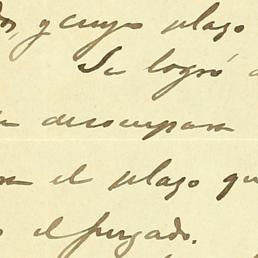 y cuyo plazo
Se logró
desocupara
el plazo qu
el juzgado.